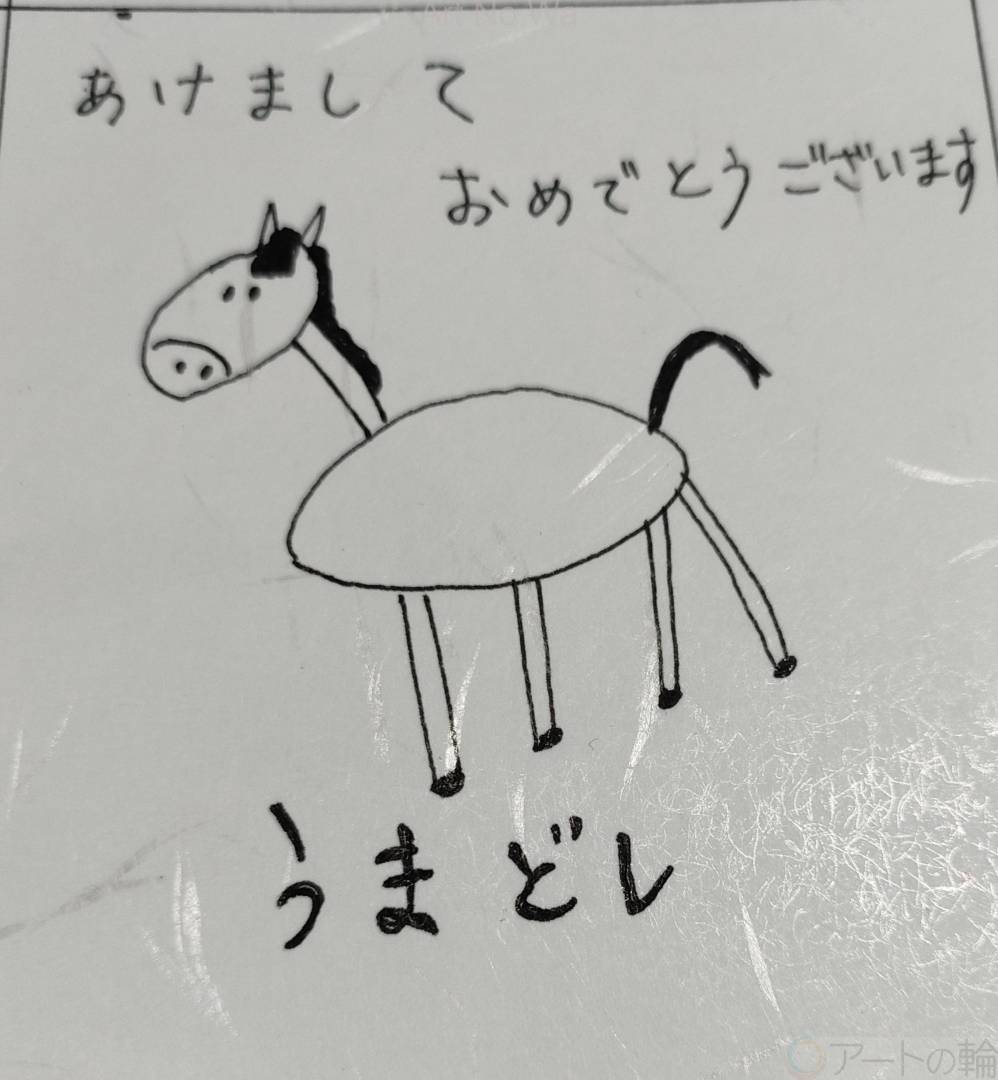 あけまして
おめでとうございます
うまどし
アートの輪